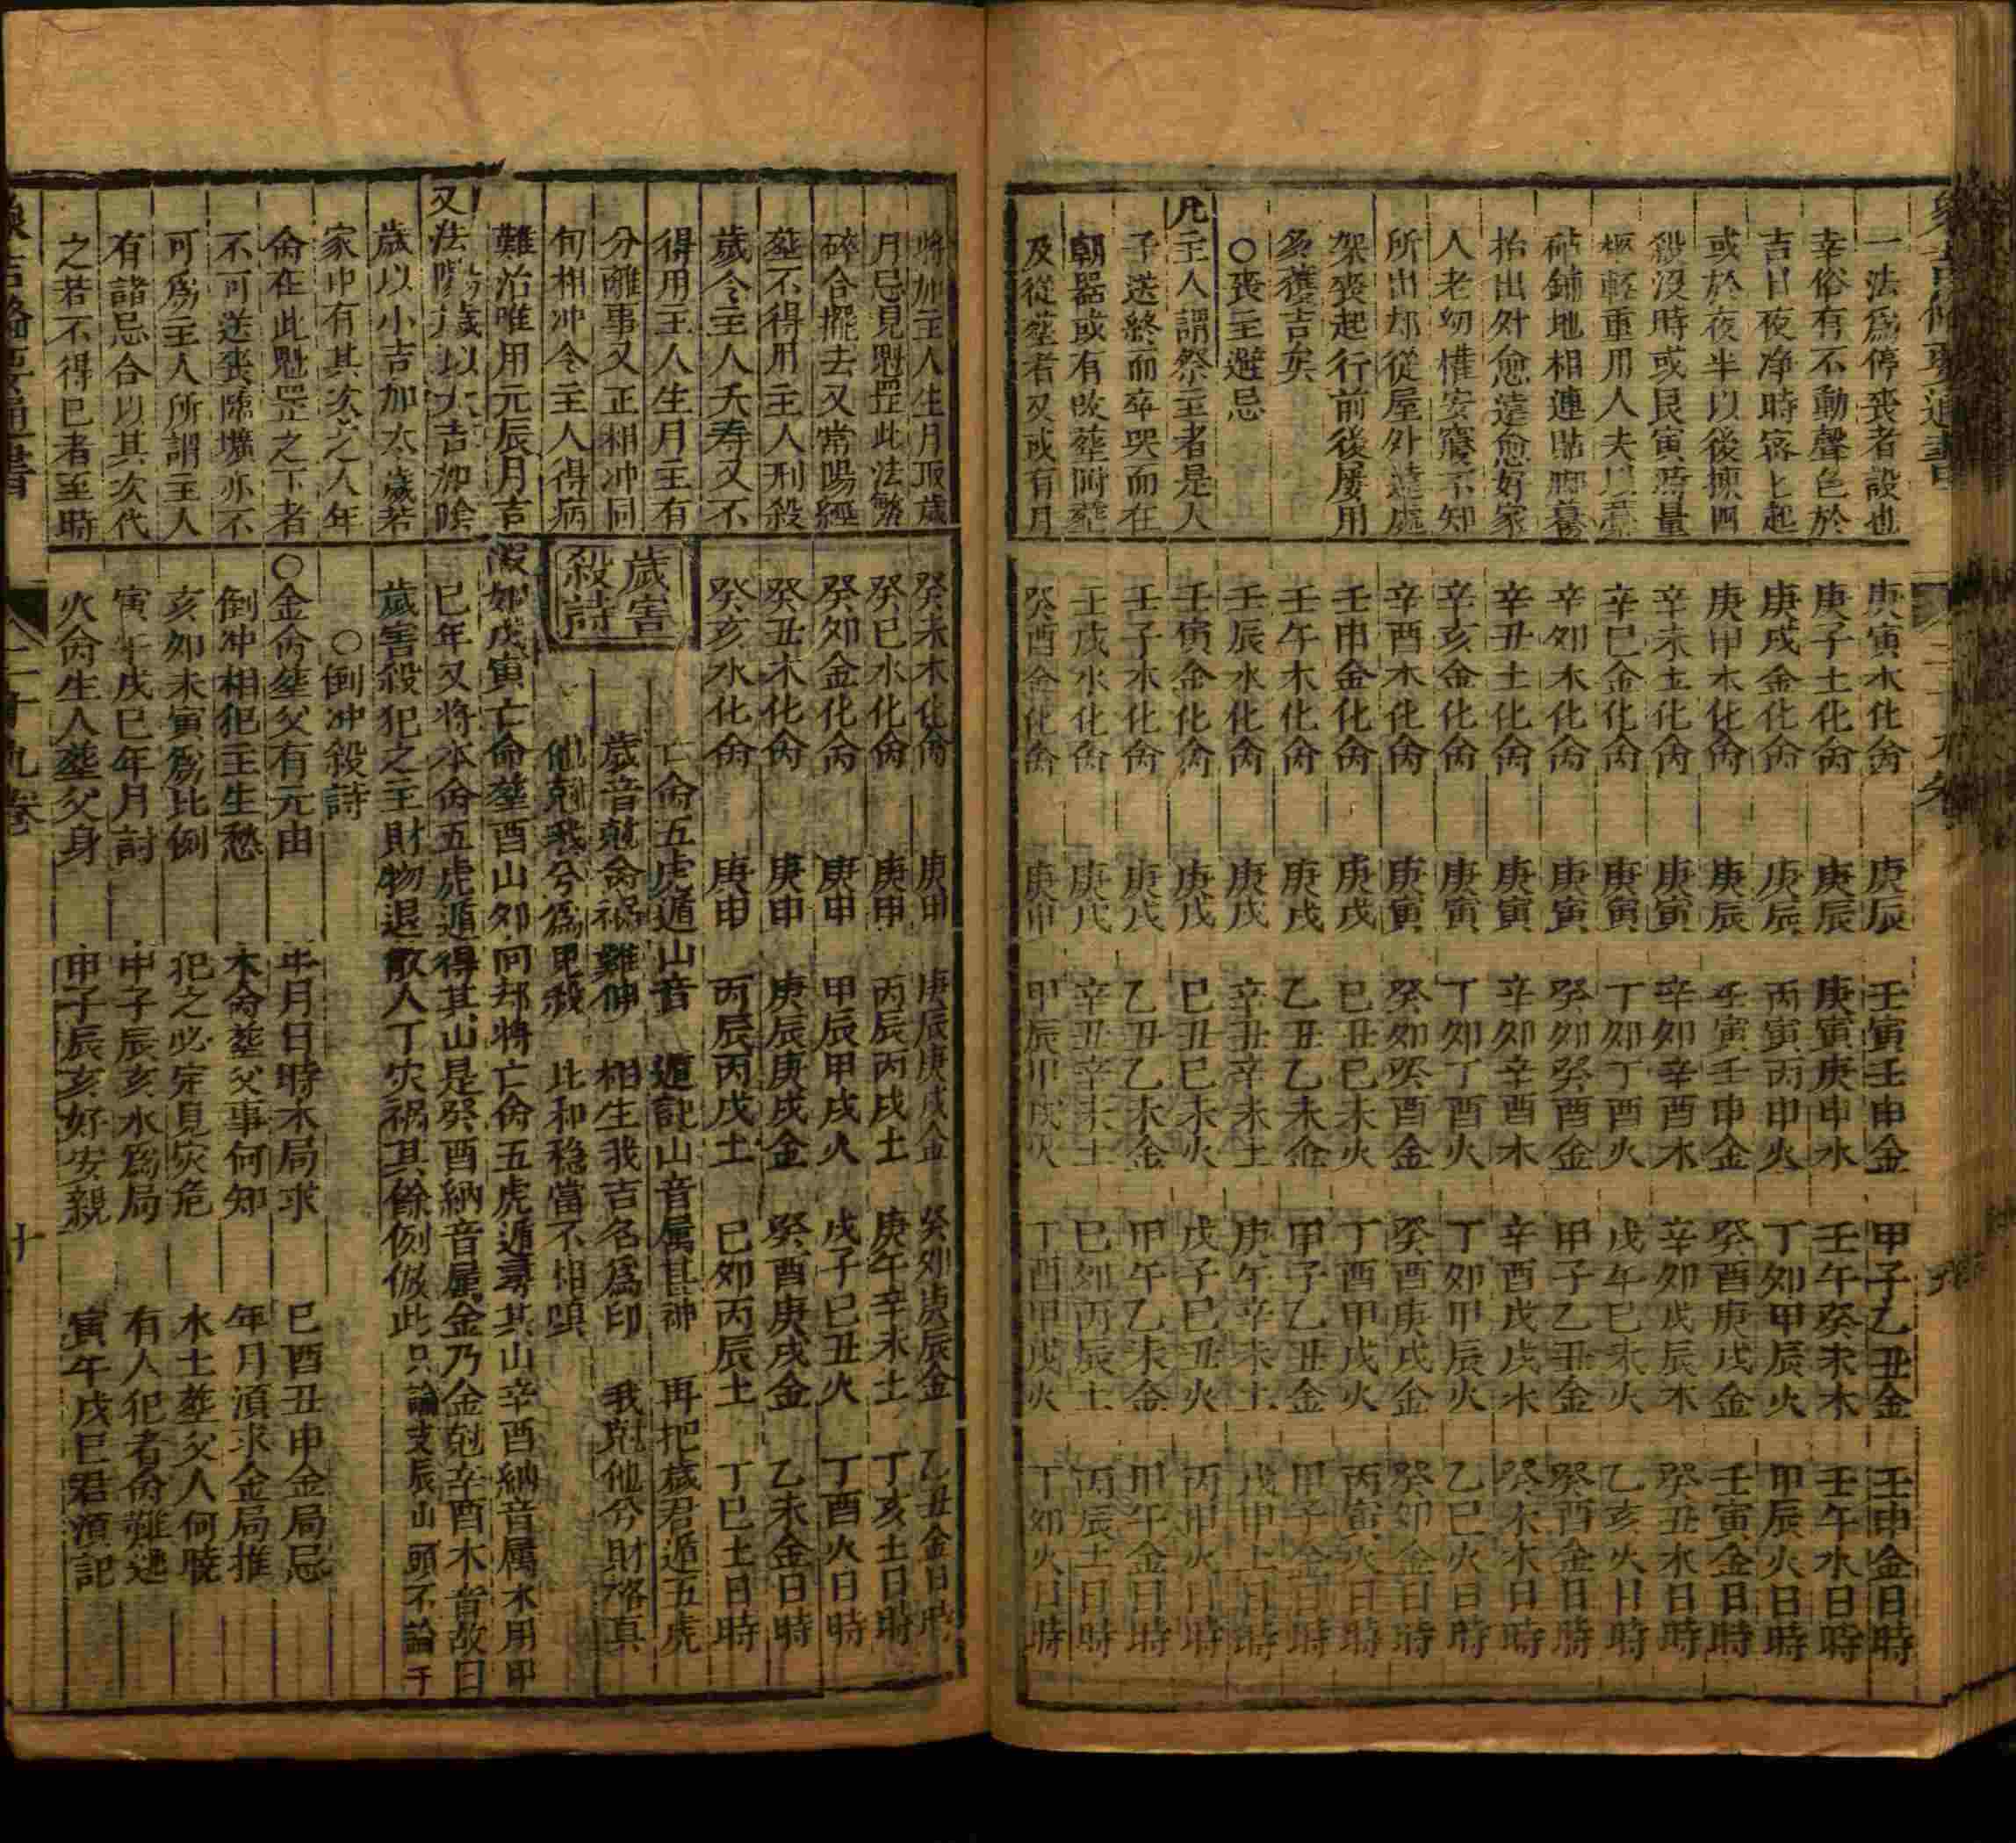 一法爲停喪者設也
幸俗有不動聲色於
吉日夜净時宻上起
或於夜半以後揀四
殺沒時或艮寅時量
柩輕重用人夫以
砧鋪地相連貼
抬出外愈遠愈好家
人老幼權安寢不知
所出却從屋外遠處
架喪起行前後屡用
多獲吉矣
○喪主避忌
凡主人謂祭主者是人
子送終而卒哭而在
朝噐或有改塟附塟
及從塟者又或有月
庚寅木化命 庚辰 壬寅壬申金 甲子乙丑金 壬申金日時
庚子土化命 庚辰 庚寅庚申木 壬午癸未木 壬午木日時
庚戌金化命 庚辰 丙寅丙申火 丁卯甲辰火 甲辰火日時
庚申木化命 庚辰 壬寅壬申金 癸酉庚戌金 壬寅金日時
辛未土化命 庚寅 辛卯辛酉木 辛卯戊辰木 癸丑木日時
辛巳金化命 庚寅 丁卯丁酉火 戊午巳未火 乙亥火日時
辛卯木化命 庚寅 癸卯癸酉金 甲子乙丑金 癸酉金日時
辛丑土化命 庚寅 辛卯辛酉木 辛酉戊戌木 癸未木日時
辛亥金化命 庚寅 丁卯丁酉火 丁卯甲辰火 乙巳火日時
辛酉木化命 庚寅 癸卯癸酉金 癸酉庚戌金 癸卯金日時
壬申金化命 庚戌 巳丑巳未火 丁酉甲戌火 丙寅火日時
壬午木化命 庚戌 乙丑乙未金 甲子乙丑金 甲子金日時
壬辰水化命 庚戌 辛丑辛未土 庚午辛未土 戊申土日時
壬寅金化命 庚戌 巳丑巳未火 戊子巳丑火 丙申火日時
壬子木化命 庚戌 乙丑乙未金 甲午乙未金 甲午金日時
壬戌水化命 庚戌 辛丑辛未土 巳卯丙辰土 丙辰土日時
癸酉金化命 庚申 甲辰甲戌火 丁酉甲戌火 丁卯火日時
將加主人生月取歲
月忌見魁罡此法繁
碎合擺去又常陽經
塟不得用主人刑殺
歲令主人夭寿又不
得用主人生月主有
分離事又正相冲同
旬相冲令主人得病
難治唯用元辰月吉
又法陽歲以大吉加陰
歲以小吉加太歲若
家中有其次之人年
命在此魁罡之下者
不可送喪臨壙亦不
可爲主人所謂主人
有諸忌合以其次代
之若不得已者至時
癸未木化命 庚申 庚辰庚戌金 癸卯庚辰金 乙丑金日時
癸巳水化命 庚申 丙辰丙戌土 庚午辛未土 丁亥土日時
癸卯金化命 庚申 甲辰甲戌火 戊子巳丑火 丁酉火日時
癸丑木化命 庚申 庚辰庚戌金 癸酉庚戌金 乙未金日時
癸亥水化命 庚申 丙辰丙戌土 巳卯丙辰土 丁巳土日時
歲害殺詩
亡命五虎遁山音 遁記山音属甚神 再把歲君遁五虎
歲音尅命禍難伸 相生我吉名爲印 我尅他兮財洛真
他尅我兮爲甲殺 比和穏當不相嗔
假如戊寅亡命塟酉山夘向却將亡命五虎遁尋其山辛酉納音属木用甲
巳年又將本命五虎遁得其山是癸酉納音属金乃金尅辛酉木音故曰
歲害殺犯之主財物退散人丁灾禍其餘例倣此只論支辰山頭不論干
○倒冲殺詩
○金命塟父有元由 年月日時木局求 巳酉丑申金局忌
倒冲相犯主生愁 木命塟父事何知 年月湏求金局推
亥夘未寅爲比例 犯之必定見灾危 水土塟父人何曉
寅午戌巳年月討 申子辰亥水爲局 有人犯者命難逃
火命生人塟父身 申子辰亥好安親 寅午戌巳君湏記